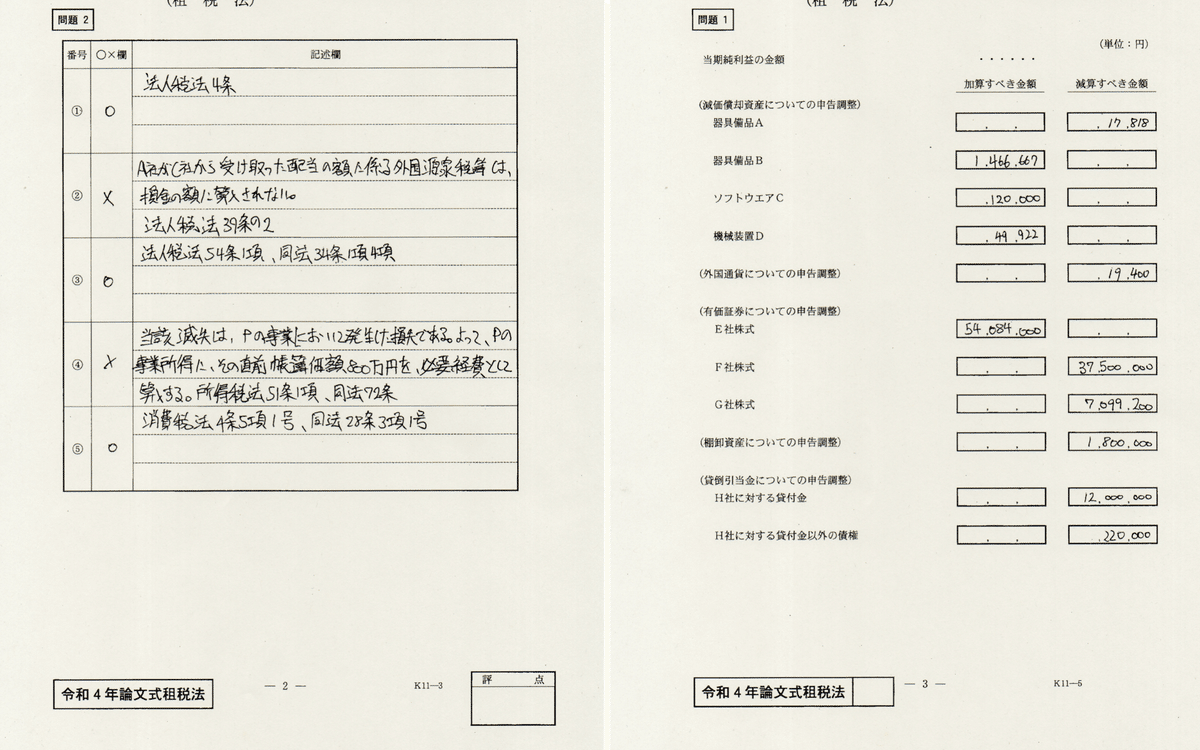 (租 税 法)
問題 2
番号 ○×欄 記述欄
① ○ 法人税法4条
② × A社がC社から受け取った配当の額に係る外国源泉税等は、
損金の額に算入されない。
法人税法39条の2
③ ○ 法人税法54条1項、同法34条1項4項
④ × 当該滅失は、Pの事業において発生した損失である。よって、Pの
事業所得に、その直前帳簿価額800万円を、必要経費として
算入する。所得税法51条1項、同法72条
⑤ ○ 消費税法4条5項1号、同法28条3項1号
令和4年論文式租税法
― 2 ―
K11―3
評 点
(租 税 法)
問題 1
(単位:円)
当期純利益の金額 ・・・・・・
加算すべき金額 減算すべき金額
(減価償却資産についての申告調整)
器具備品A 17,818
器具備品B 1,466,667
ソフトウエアC 120,000
機械装置D 49,922
(外国通貨についての申告調整) 19,400
(有価証券についての申告調整)
E社株式 54,084,000
F社株式 37,500,000
G社株式 7,099,200
(棚卸資産についての申告調整) 1,800,000
(貸倒引当金についての申告調整)
H社に対する貸付金 12,000,000
H社に対する貸付金以外の債権 220,000
令和4年論文式租税法
― 3 ―
K11―5